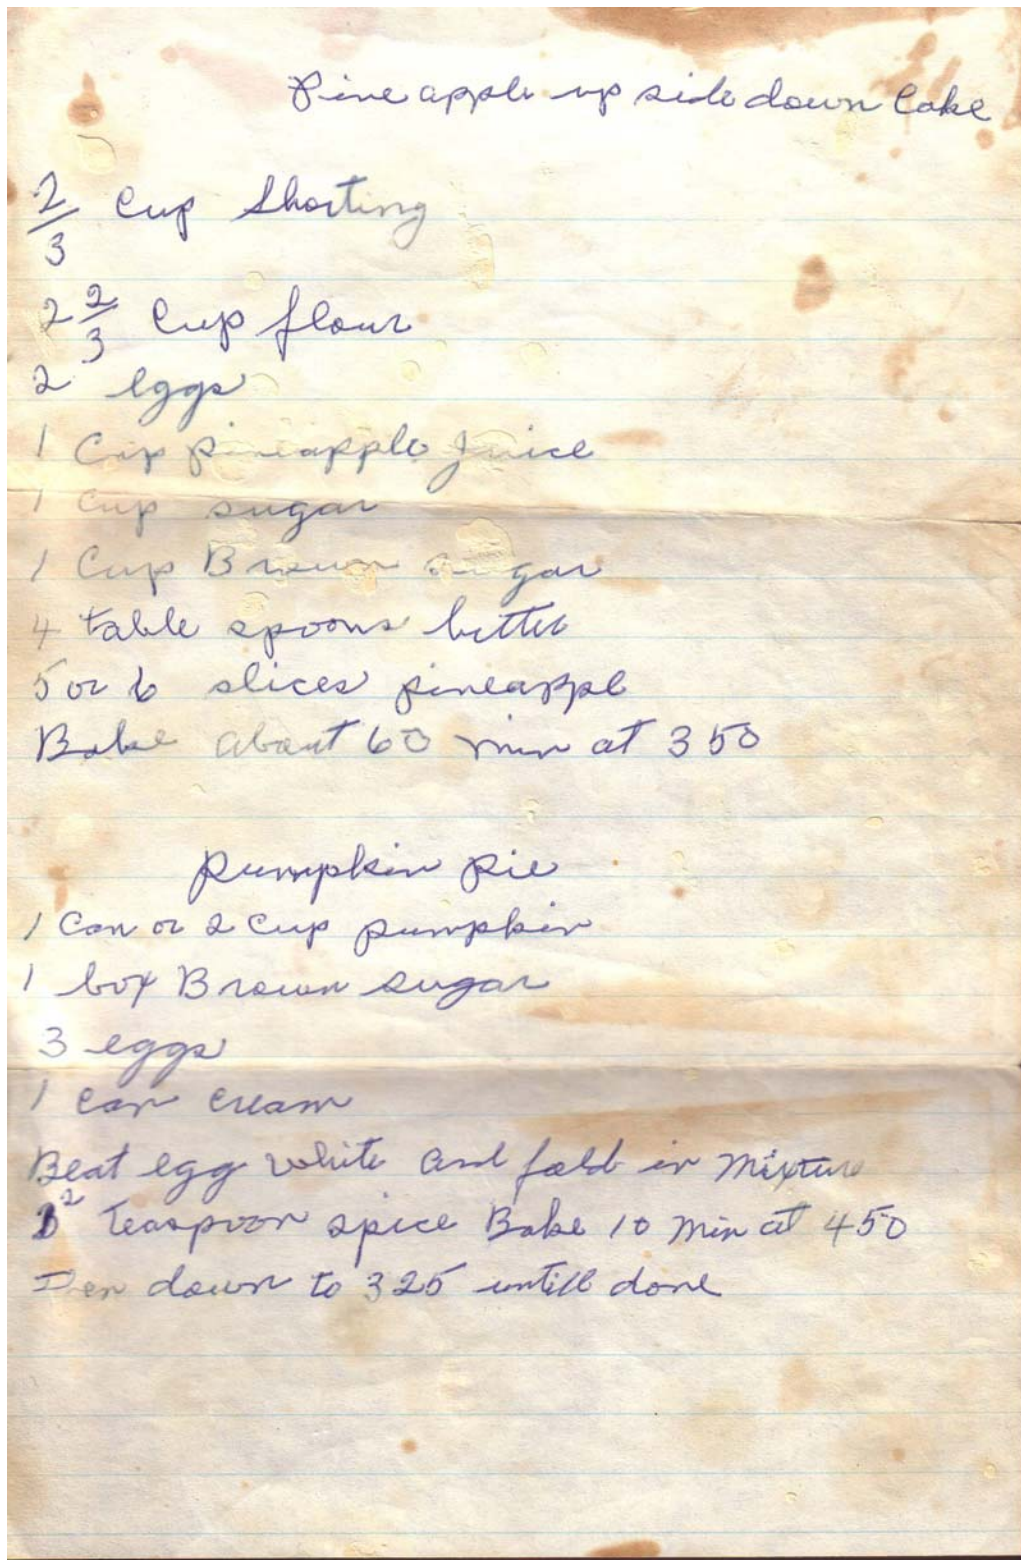 Pineapple up side down Cake
2/3 Cup Shorting
2 2/3 Cup flour
2 eggs
1 Cup pineapple Juice
1 Cup sugar
1 Cup Brown sugar
4 table spoons butter
5 or 6 slices pineappl
Bake about 60 min at 350
Pumpkin Pie
1 Can or 2 Cup pumpkin
1 box Brown sugar
3 eggs
1 can cream
Beat egg white and fold in Mixture
2 teaspoon spice Bake 10 Min at 450
down to 325 untill done